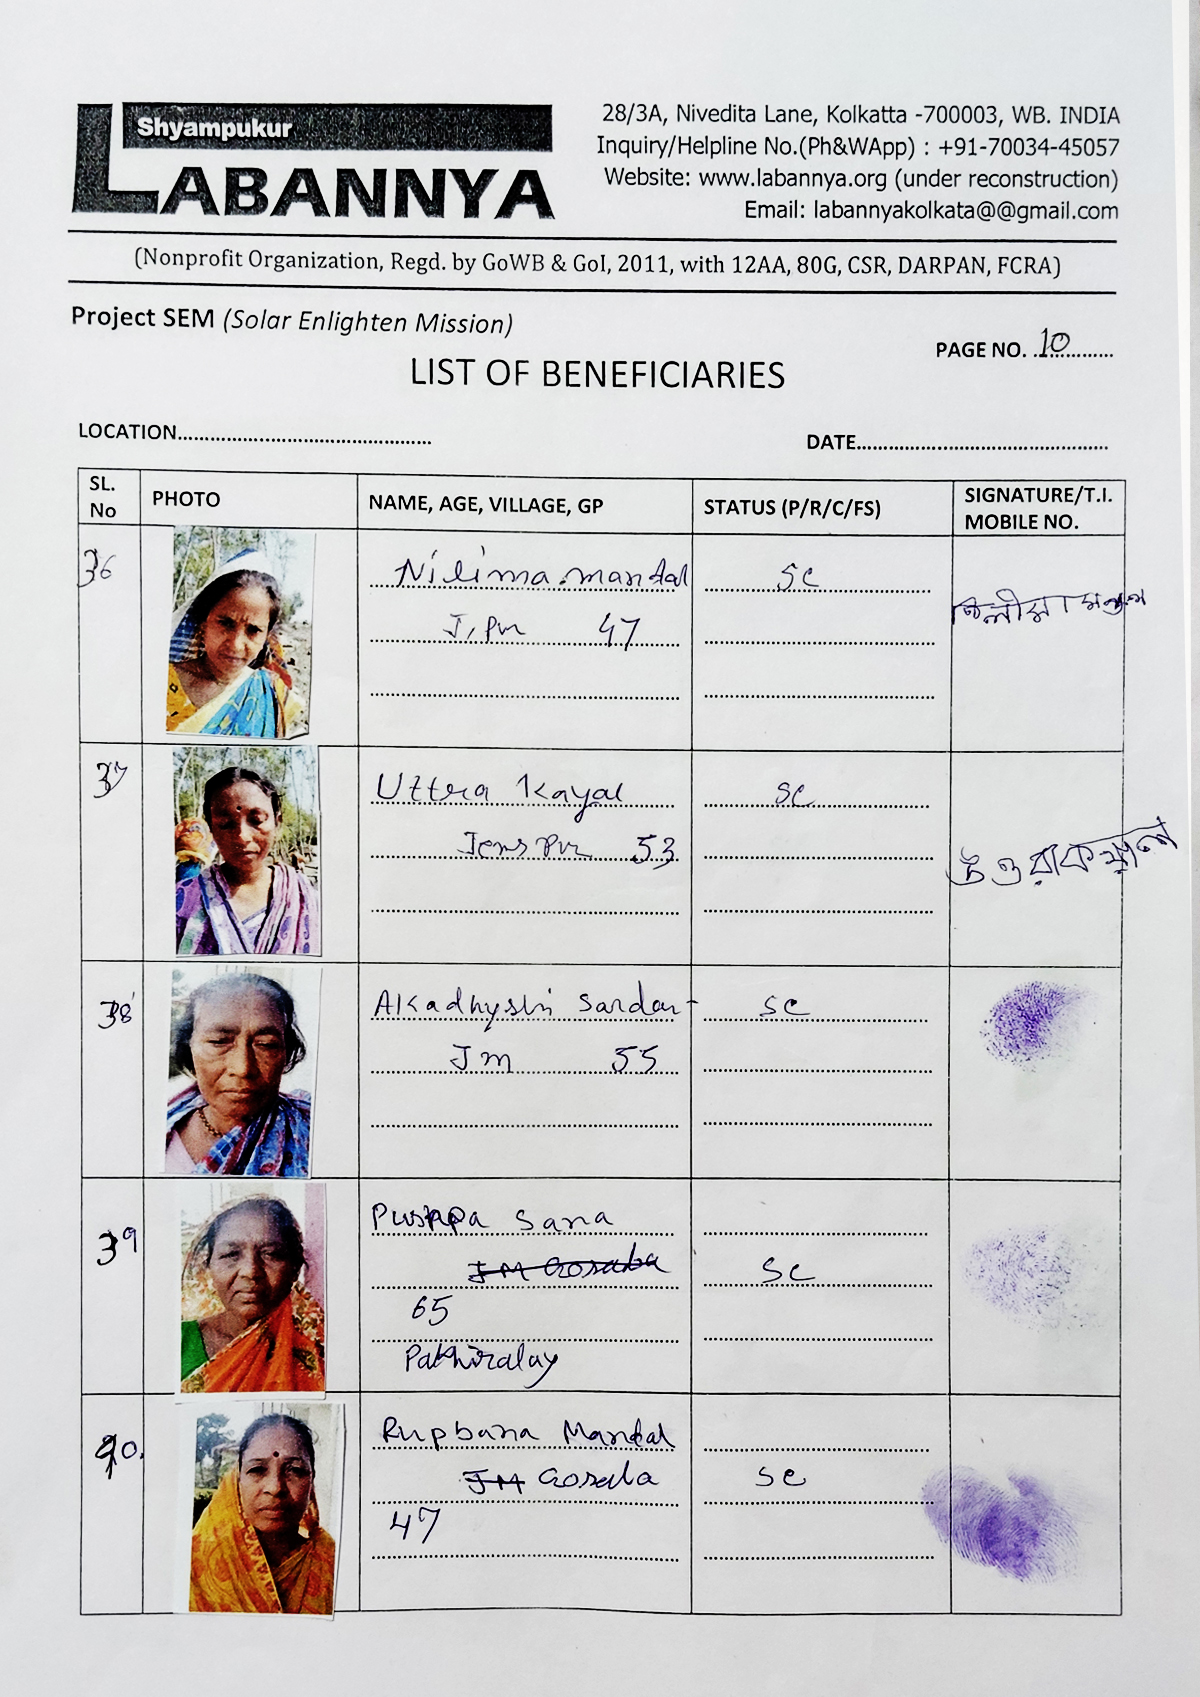 Shyampukur
LABANNYA
28/3A, Nivedita Lane, Kolkatta -700003, WB. INDIA
Inquiry/Helpline No.(Ph&WApp) : +91-70034-45057
Website: www.labannya.org (under reconstruction)
Email: labannyakolkata@@gmail.com
(Nonprofit Organization, Regd. by GoWB & GoI, 2011, with 12AA, 80G, CSR, DARPAN, FCRA)
Project SEM (Solar Enlighten Mission)
PAGE NO. 10
LIST OF BENEFICIARIES
LOCATION
DATE
SL. No PHOTO NAME, AGE, VILLAGE, GP STATUS (P/R/C/FS) SIGNATURE/T.I. MOBILE NO.
36 Nilima mandal SC নিলীমা মণ্ডল
J, Pur 47
37 Uttra Kayal SC উত্তরা কয়াল
Jems Pur 53
38 Sardar SC
JM 55
39 Pushpa Sana
JM Gosaba SC
65
Pakhiralay
40. Rupbana Mandal
JM Gosaba SC
47